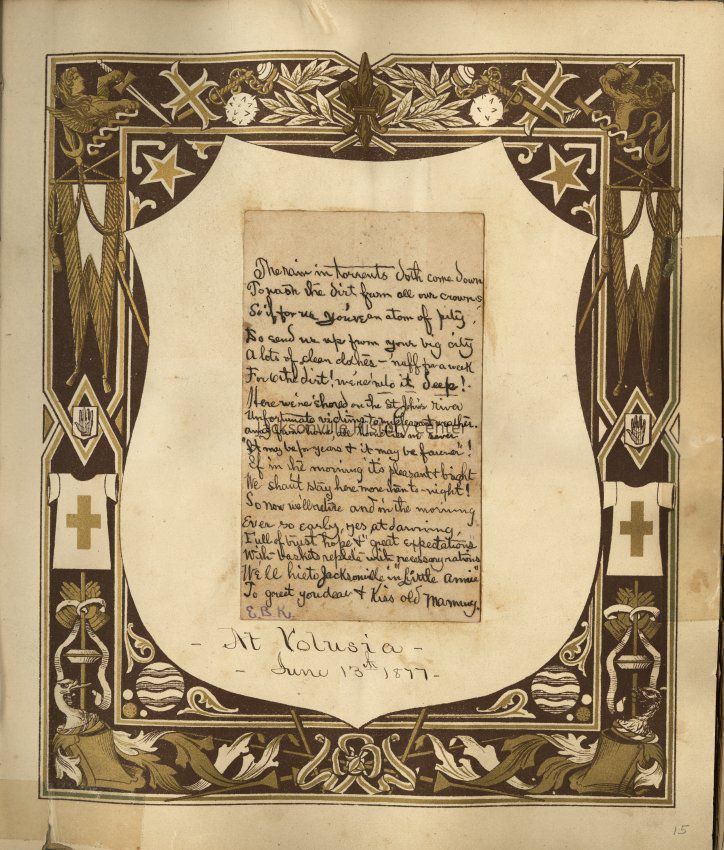 The rain in torrents doth come down
To wash the dirt from all our crowns
So if for us you've an atom of pity,
Do send us up from your big city
A lots of clean clothes – nuff for a week
For Oh the dirt! we're into it deep!
Here we're shored on the St John's River
Unfortunate victims to unpleasant weather.
Jacksonville History Center
and from home all
"It may be for years & it may be forever"!
If in the morning it's pleasant & bright
We shan't stay here more than to-night!
So now we'll retire and in the morning
Ever so early, yes at dawning,
Full of trust hope & "great expectations"
With baskets replete with necessary rations
We'll hie to Jacksonville in "Little Annie"
To greet you dear & Kiss old Mammy.
E.B.K.
- At Volusia -
- June 13th 1877 -
15